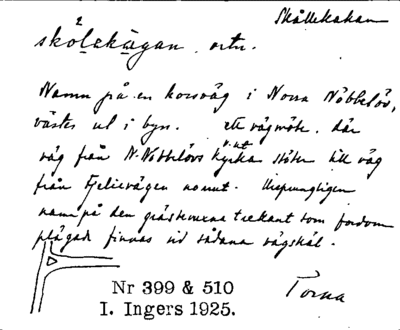 Skållekakan
skålekagan ortn.
Namn på en korsväg i Norra Nöbbelöv,
väster ut i byn. ett vägmöte, där
väg från N. Nöbbelövs kyrka v. ut stöter till väg
från Fjelievägen norrut. Ursprungligen
namn på den gräsbevuxna trekant som fordom
plägade finnas vid sådana vägskäl.
Nr 399 & 510
I. Ingers 1925.
Torna